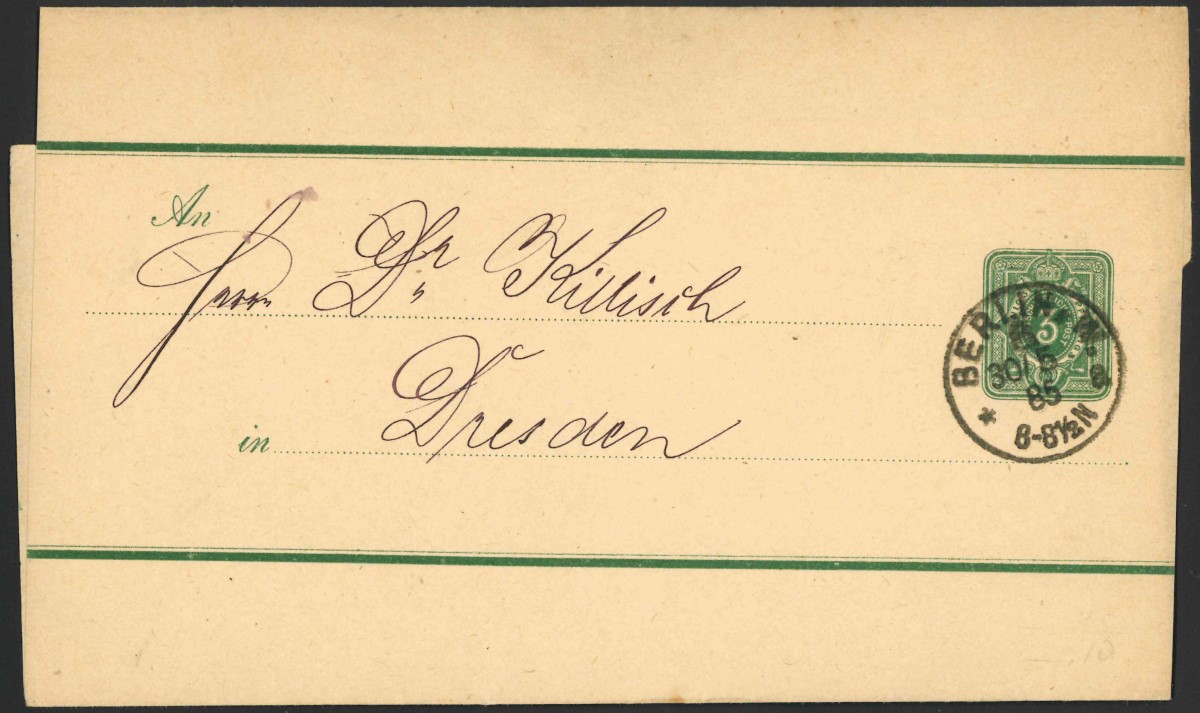 An
Herrn Dr. Killisch
in Dresden
3
BERLIN, W.
30/5
85
8-8½N
* a
.10